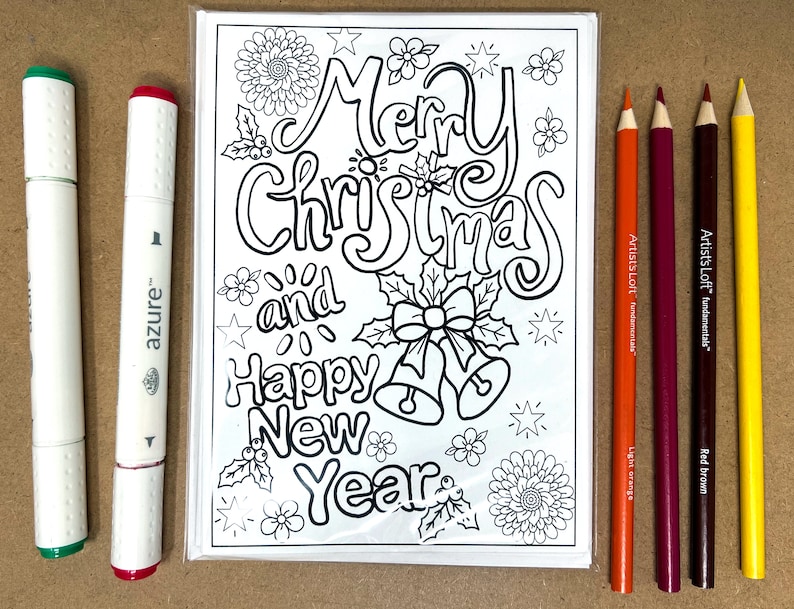 Merry
Christmas
and
Happy
New
Year
azure™
azure
Artist's Loft™ fundamentals™
Light orange
Artist's Loft™ fundamentals™
Red brown